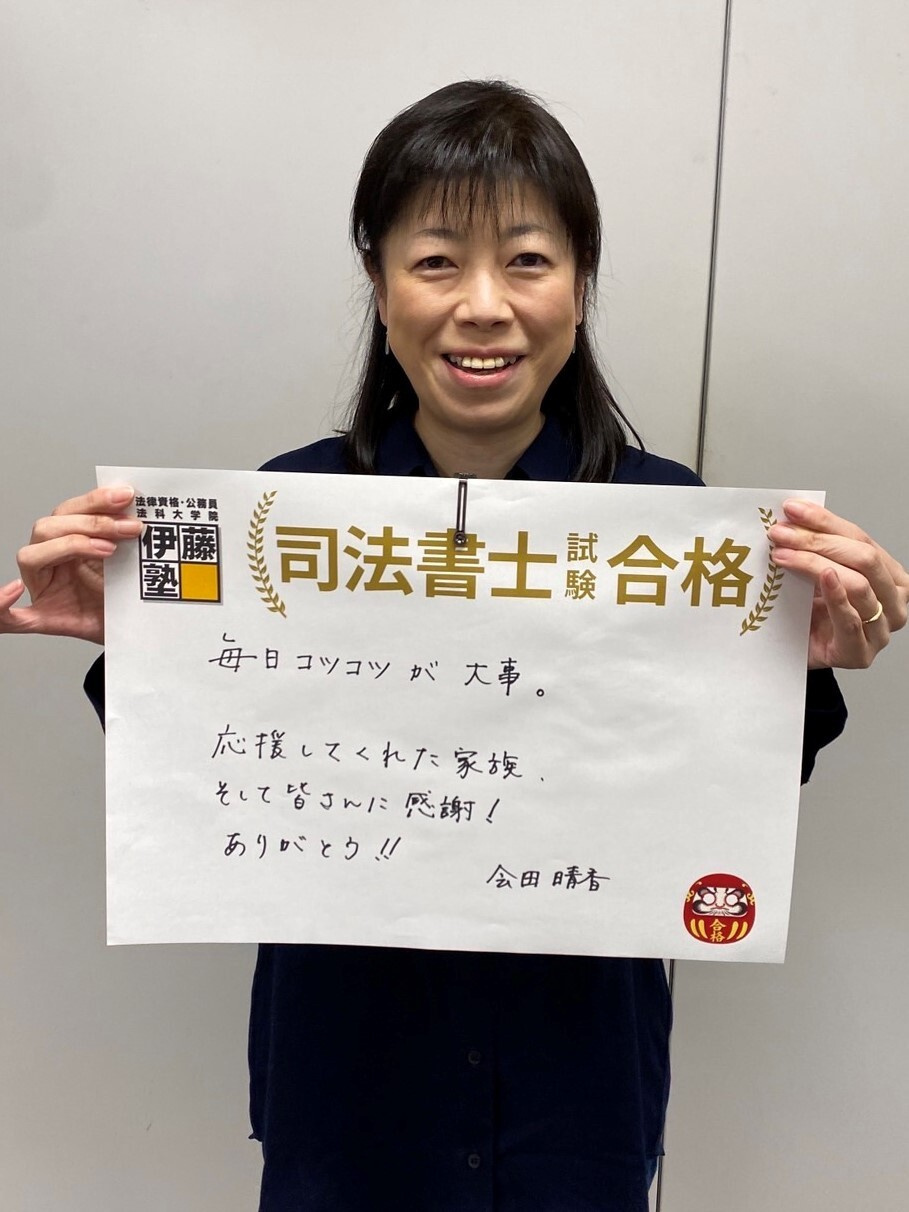 法律資格・公務員
法科大学院
伊藤塾
司法書士試験合格
毎日コツコツが大事。
応援してくれた家族、
そして皆さんに感謝！
ありがとう!!
会田晴香
合格